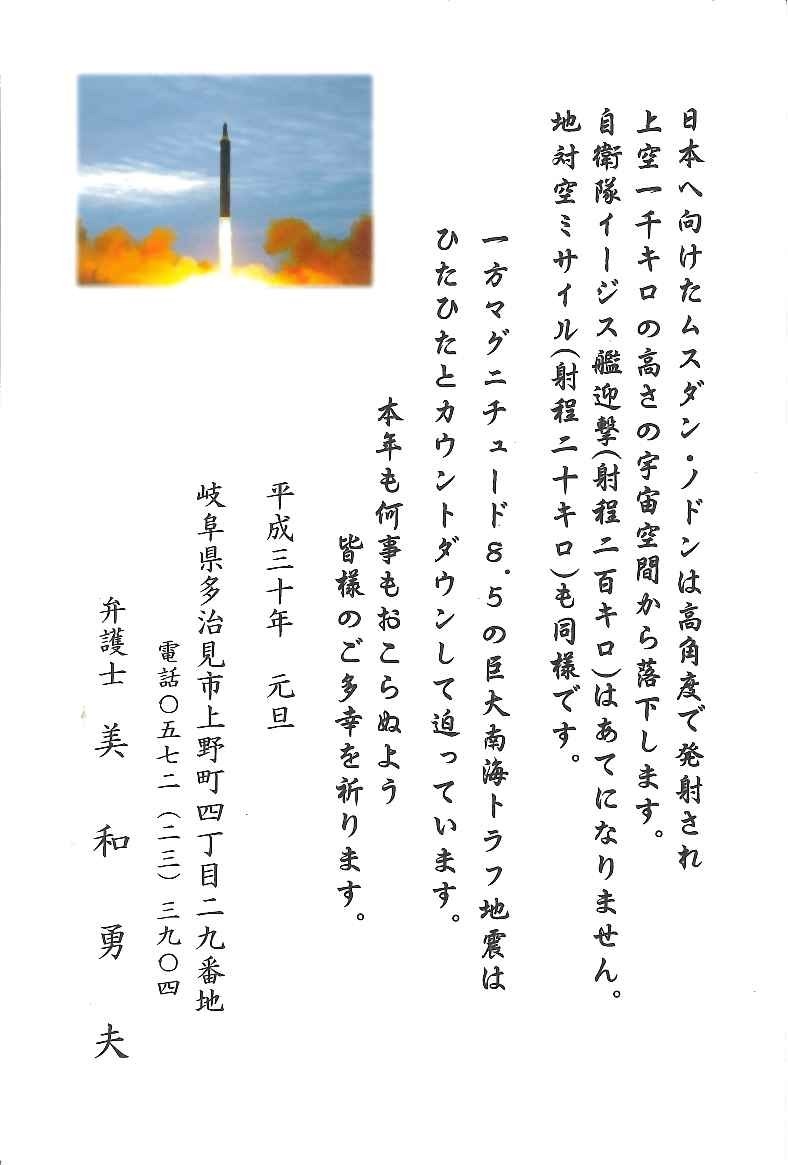 日本へ向けたムスダン・ノドンは高角度で発射され
上空一千キロの高さの宇宙空間から落下します。
自衛隊イージス艦迎撃(射程二百キロ)はあてになりません。
地対空ミサイル(射程二十キロ)も同様です。
一方マグニチュード8.5の巨大南海トラフ地震は
ひたひたとカウントダウンして迫っています。
本年も何事もおこらぬよう
皆様のご多幸を祈ります。
平成三十年　元旦
岐阜県多治見市上野町四丁目二九番地
電話〇五七二(二三)三九〇四
弁護士 美和勇夫